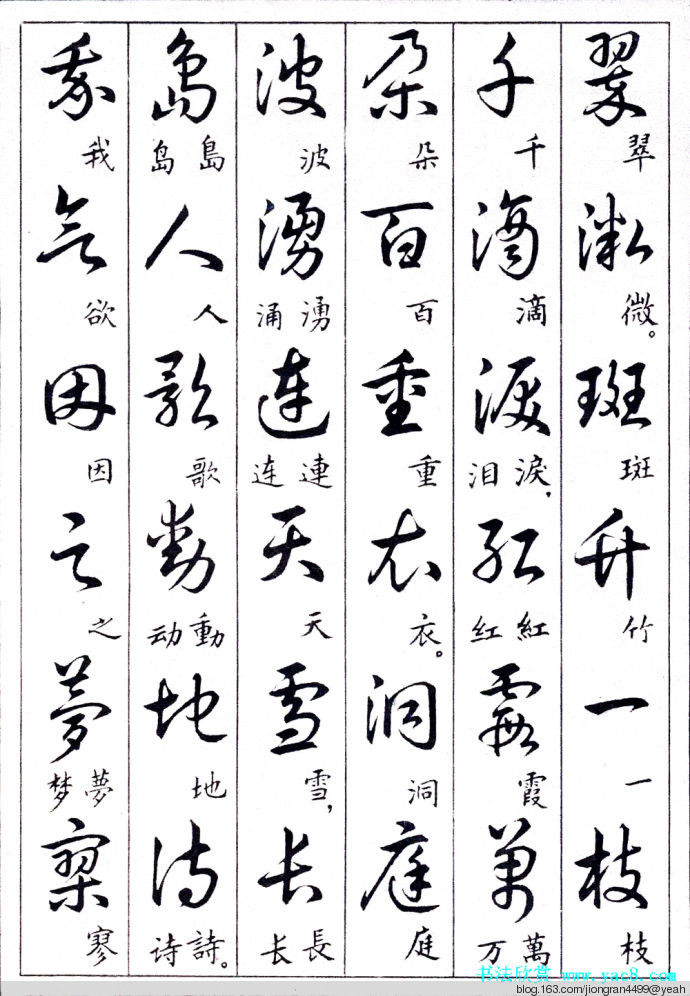 翠微斑竹一枝
翠微。斑竹一枝
千滴淚紅霞萬
千滴淚，泪紅红霞萬万
朵百重衣洞庭
朵百重衣。洞庭
波湧連天雪長
波湧涌連连天雪，長长
島人歌動地詩
島岛人歌動动地詩。诗
我欲因之夢寥
我欲因之夢梦寥
书法欣赏 www.yac8.com
blog.163.com/jiongran4499@yeah